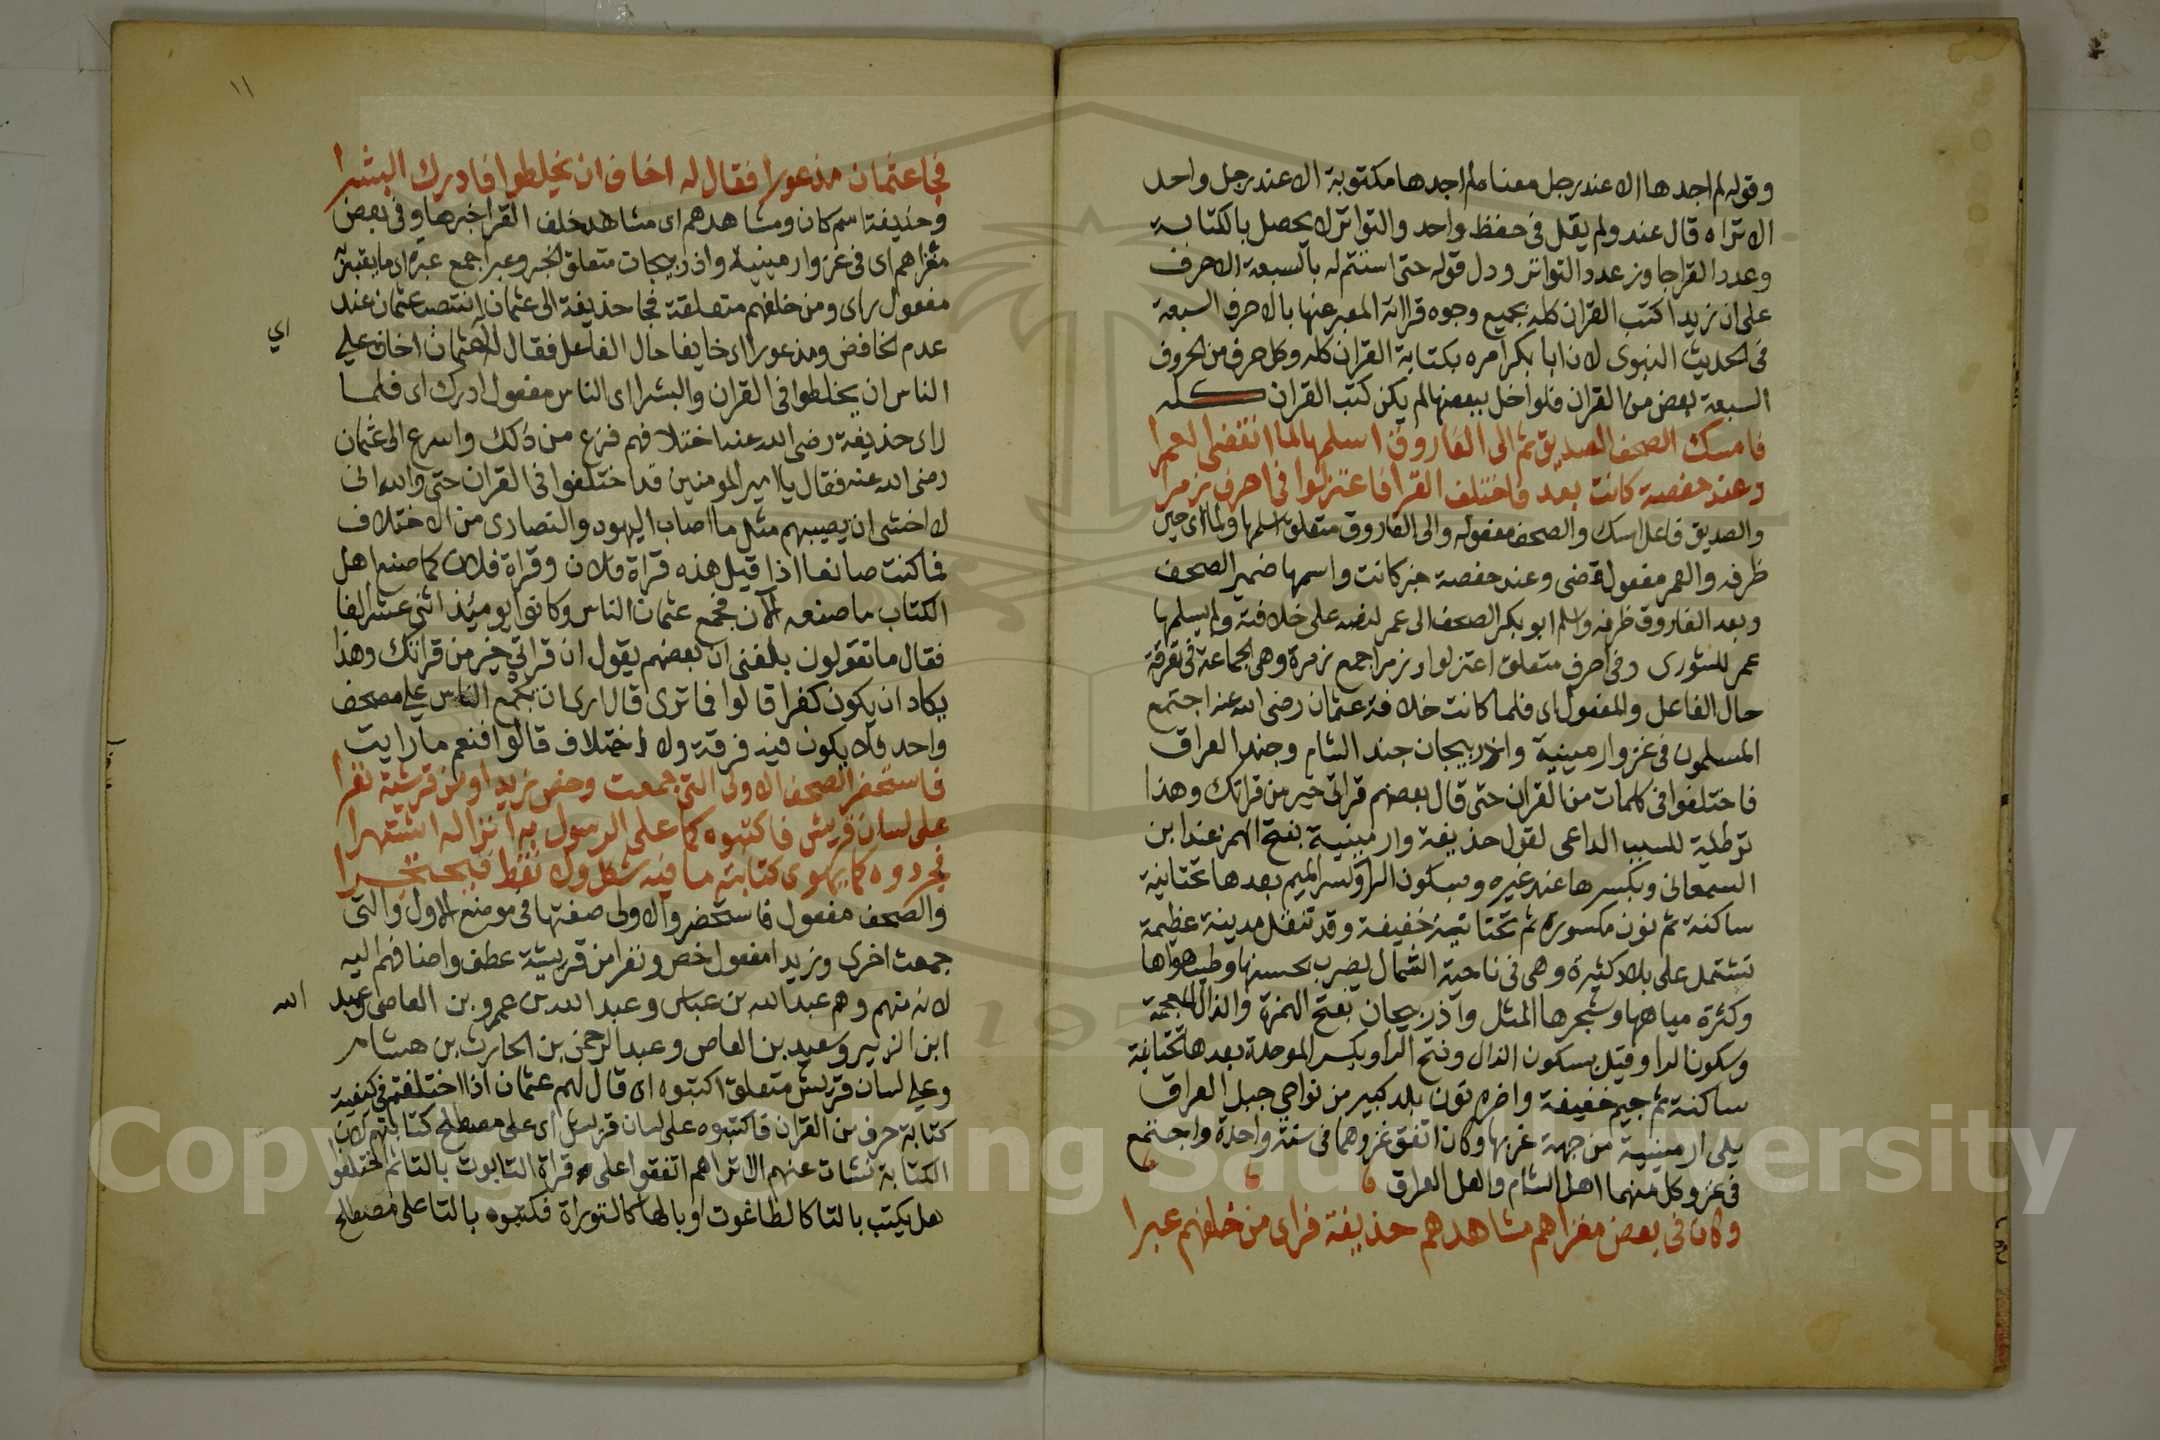 وقوله لم اجدها الا عند رجل معناه لم اجدها مكتوبة الا عند رجل واحد
الا تراه قال عند ولم يقل في حفظ واحد والتواتر لا يحصل بالكتابة
وعدد القرا جاوز عدد التواتر ودل قوله حتى استتم له بالسبعة الاحرف
على ان زيدا كتب القران كله بجميع وجوه قراته المعبر عنها بالاحرف السبعة
في الحديث النبوي لان ابا بكر امره بكتابة القران كله وكل حرف من الحروف
السبعة بعض من القران فلو اخل ببعضها لم يكن كتب القران كله
فامسك الصحف الصديق ثم الى الفاروق اسلمها لما انقضى العمرا
وعند حفصة كانت بعد فاختلف القرا فاعتزلوا في احرف زمرا
والصديق فاعل امسك والصحف مفعوله والى الفاروق متعلق اسلمها ولما اى حين
ظرفه والعمر مفعول قضى وعند حفصة خبر كانت واسمها ضمير الصحف
وبعد الفاروق ظرفه واسلم ابو بكر الصحف الى عمر لنصه على خلافته ولم يسلمها
عمر للشورى وفي احرف متعلق اعتزلوا وزمرا جمع زمرة وهي الجماعة في تفرقة
حال الفاعل والمفعول اى فلما كانت خلافة عثمان رضى الله عنه اجتمع
المسلمون في غزو ارمينية واذربيجان جند الشام وجند العراق
فاختلفوا في كلمات من القران حتى قال بعضهم قراتي خير من قراتك وهذا
توطئة للسبب الداعى لقول حذيفة وارمينية بفتح الهمز عند ابن
السمعاني وبكسرها عند غيره وبسكون الرا وكسر الميم بعدها تحتانية
ساكنة ثم نون مكسورة ثم تحتانية خفيفة وقد تثقل مدينة عظيمة
تشتمل على بلاد كثيرة وهي في ناحية الشمال يضرب بحسنها وطيب هواها
وكثرة مياهها وشجرها المثل وآذربيجان بفتح الهمزة والذال المعجمة
وسكون الرا وقيل بسكون الذال وفتح الرا وبكسر الموحدة بعدها تحتانية
ساكنة ثم جيم خفيفة واخره نون بلد كبير من نواحي جبل العراق
يلى ارمينية من جهة غربها وكان اتفق غزوهما في سنة واحدة واجتمع
في غزو كل منهما اهل الشام واهل العراق
وكان في بعض مغزاهم مشاهدهم حذيفة فراى من خلفهم عبرا
١١
فجا عثمان مذعورا فقال له اخاف ان يخلطوا فادرك البشرا
وحذيفة اسم كان ومشاهدهم اى مشاهد خلف القرا خبرها وفي بعض
مغزاهم اى في غزو ارمينية واذربيجان متعلق الخبر وعبرا جمع عبرة اى ما يعتبر به
مفعول راى ومن خلفهم متعلقة فجا حذيفة الى عثمان انتصب عثمان عند
اي
عدم الخافض ومذعورا اى خايفا حال الفاعل فقال لعثمان اخاف على
الناس ان يخلطوا في القران والبشرا اى الناس مفعول ادرك اى فلما
راى حذيفة رضى الله عنه اختلافهم فزع من ذلك واسرع الى عثمان
رضى الله عنه فقال يا امير المومنين قد اختلفوا في القران حتى والله انى
لاخشى ان يصيبهم مثل ما اصاب اليهود والنصارى من الاختلاف
فما كنت صانعا اذا قيل هذه قراة فلان وقراة فلان كما صنع اهل
الكتاب ما صنعه الآن فجمع عثمان الناس وكانوا يومئذ اثنى عشر الفا
فقال ما تقولون بلغنى ان بعضهم يقول ان قراتي خير من قراتك وهذا
يكاد ان يكون كفرا قالوا فما ترى قال ارى ان يجمع الناس على مصحف
واحد فلا يكون فيه فرقة ولا اختلاف قالوا فنعم ما رايت
فاستحضر الصحف الاولى التى جمعت وخص زيدا ومن قريشه نفرا
على لسان قريش فاكتبوه كما على الرسول به انزاله اشتهرا
فجردوه كما يهوى كتابته ما فيه شكل ولا نقط فيحتجرا
والصحف مفعول فاستحضر والاولى صفتها في موضع الاول والتى
جمعت اخرى وزيدا مفعول خص ونفرا من قريشه عطف واضافهم اليه
لانه منهم وهم عبدالله بن عباس وعبد الله بن عمرو بن العاصى وعبد
الله
ابن الزبير وسعيد بن العاص وعبد الرحمن بن الحارث بن هشام
وعلى لسان قريش متعلق اكتبوه اى قال لهم عثمان اذا اختلفتم في كيفية
كتابة حرف من القران فاكتبوه على لسان قريش اى على مصطلح كتابتهم لان
الكتابة نشات عنهم الا تراهم اتفقوا على قراة التابوت بالتا ثم اختلفوا
هل يكتب بالتا كالطاغوت او بالها كالتوراة فكتبوه بالتا على مصطلح
Copyright © King Saud University
195